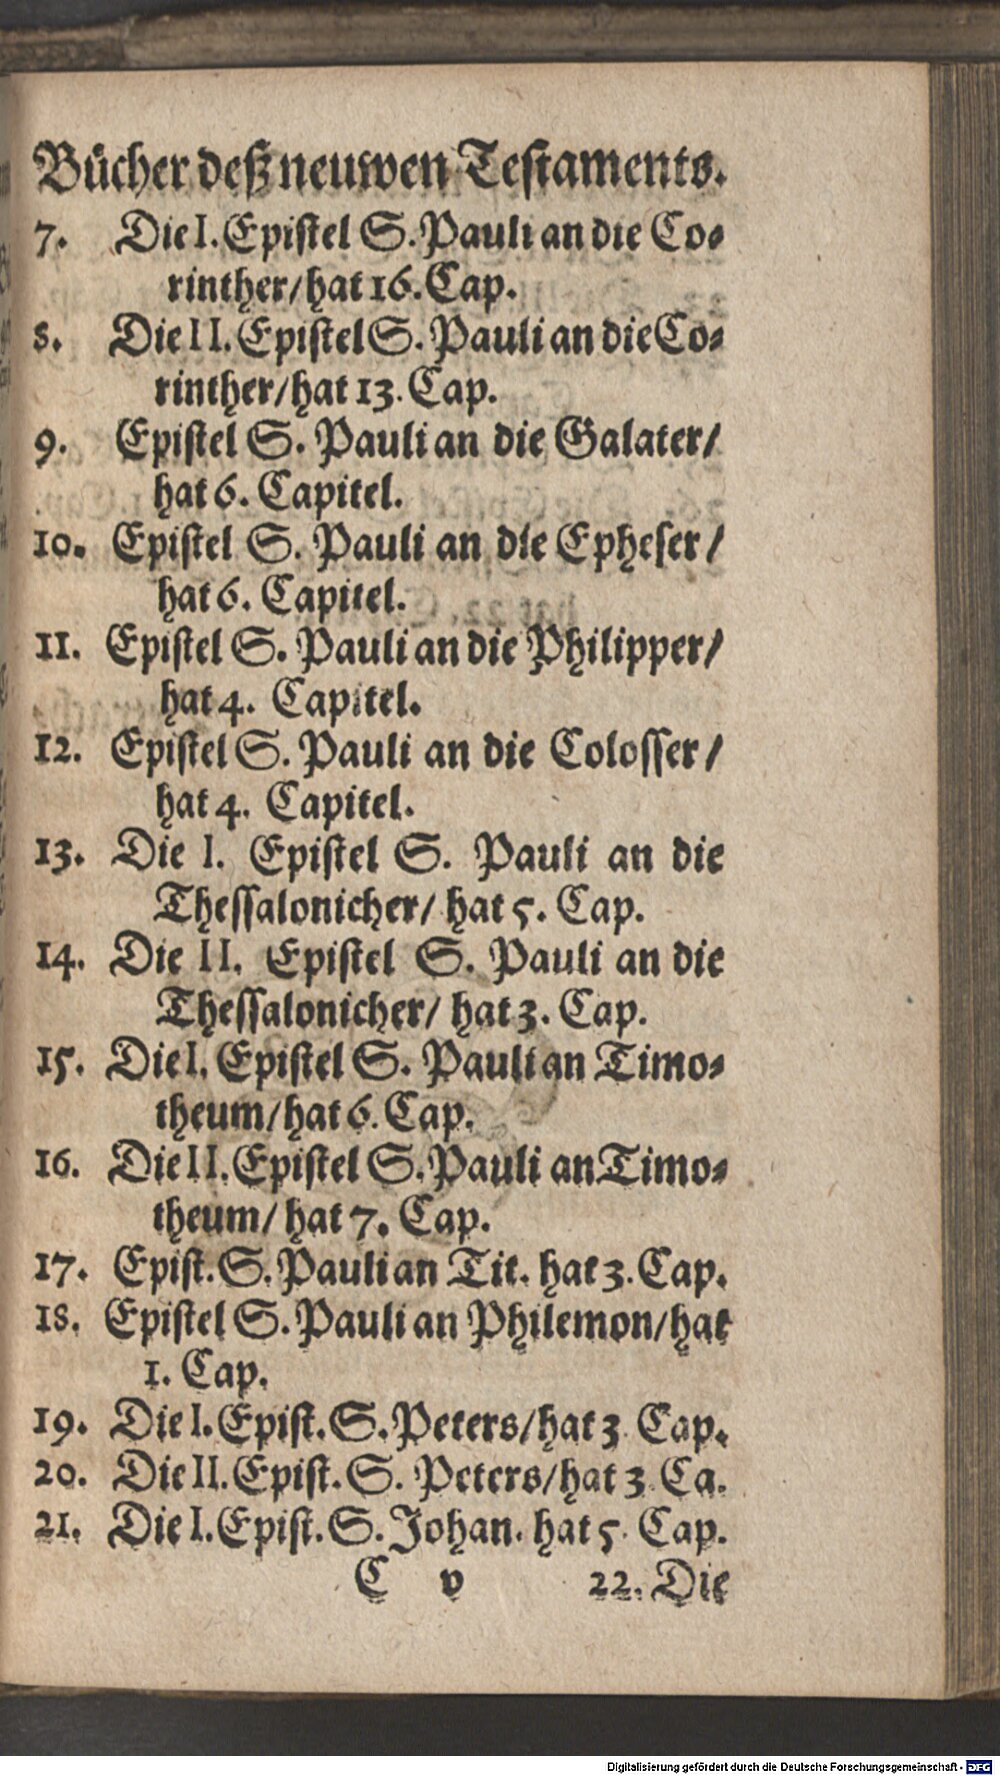 Bücher deß neuwen Testaments.
7. Die I. Epistel S. Pauli an die Co⸗
rinther/ hat 16. Cap.
8. Die II. Epistel S. Pauli an die Co⸗
rinther/ hat 13. Cap.
9. Epistel S. Pauli an die Galater/
hat 6. Capitel.
10. Epistel S. Pauli an die Epheser/
hat 6. Capitel.
11. Epistel S. Pauli an die Philipper/
hat 4. Capitel.
12. Epistel S. Pauli an die Colosser/
hat 4. Capitel.
13. Die I. Epistel S. Pauli an die
Thessalonicher/ hat 5. Cap.
14. Die II. Epistel S. Pauli an die
Thessalonicher/ hat 3. Cap.
15. Die I. Epistel S. Pauli an Timo⸗
theum/ hat 6. Cap.
16. Die II. Epistel S. Pauli an Timo⸗
theum/ hat 7. Cap.
17. Epist. S. Pauli an Tit. hat 3. Cap.
18. Epistel S. Pauli an Philemon/ hat
1. Cap.
19. Die I. Epist. S. Peters/ hat 3 Cap.
20. Die II. Epist. S. Peters/ hat 3. Ca.
21. Die I. Epist. S. Johan. hat 5. Cap.
C v 22. Die
Digitalisierung gefördert durch die Deutsche Forschungsgemeinschaft - DFG